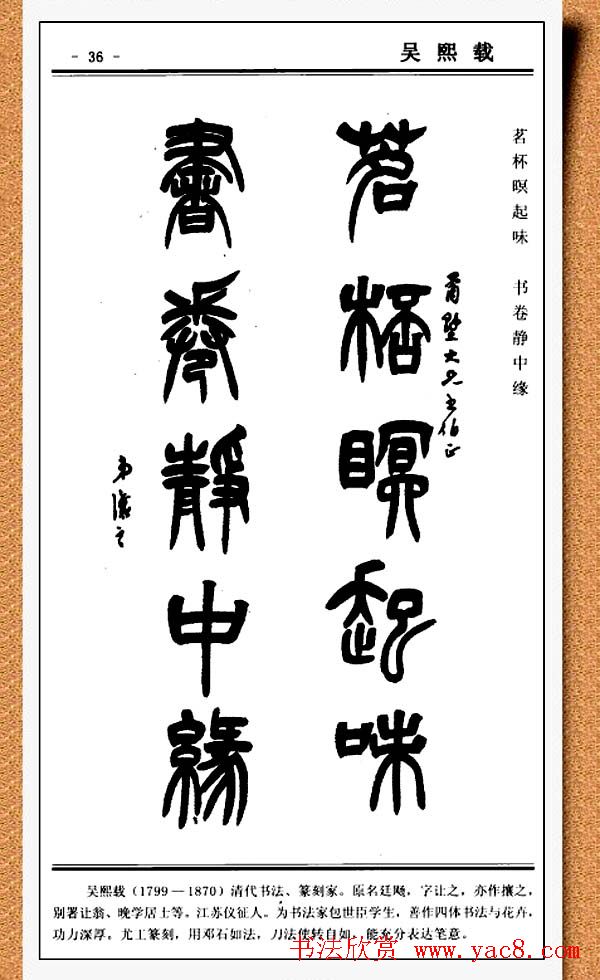 - 36 -
吴熙载
茗杯暝起味 书卷静中缘
大兄
正
茗桮瞑起味
書卷靜中緣
弟讓之
吴熙载(1799—1870)清代书法、篆刻家。原名廷飏,字让之,亦作攘之,
别署让翁、晚学居士等。江苏仪征人。为书法家包世臣学生,善作四体书法与花卉,
功力深厚。尤工篆刻,用邓石如法,刀法使转自如,能充分表达笔意。
书法欣赏 www.yac8.com